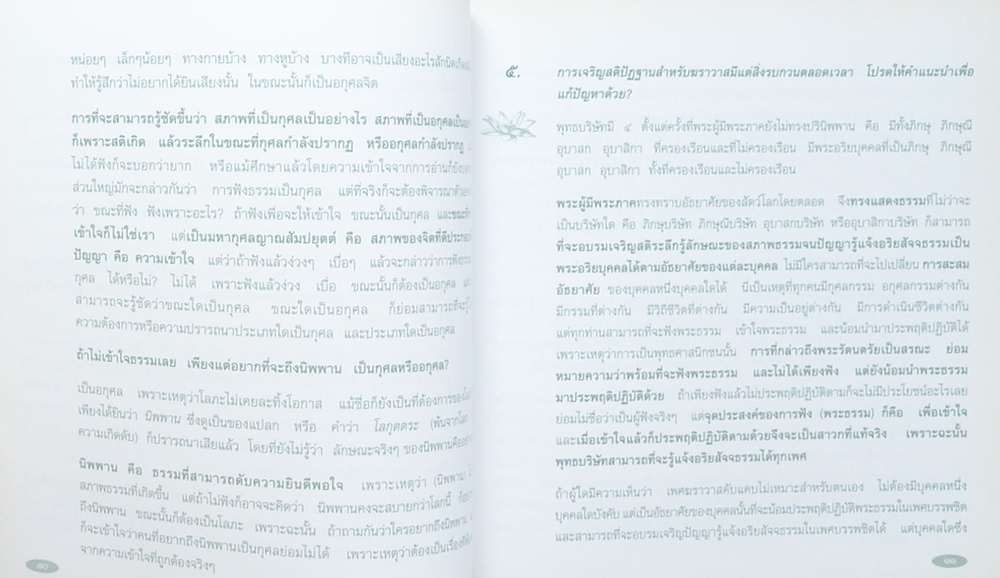 หน่อยๆ เล็กๆน้อยๆ ทางกายบ้าง ทางหูบ้าง บางทีอาจเป็นเสียงอะไรสักนิดเกิดขึ้น
ทำให้รู้สึกว่าไม่อยากได้ยินเสียงนั้น ในขณะนั้นก็เป็นอกุศลจิต
การที่จะสามารถรู้ชัดขึ้นว่า สภาพที่เป็นกุศลเป็นอย่างไร สภาพที่เป็นอกุศลเป็น
ก็เพราะสติเกิด แล้วระลึกในขณะที่กุศลกำลังปรากฏ หรืออกุศลกำลังปรากฏ
ไม่ได้ฟังก็จะบอกว่ายาก หรือแม้ศึกษาแล้วโดยความเข้าใจจากการอ่านก็ยัง
ส่วนใหญ่มักจะกล่าวกันว่า การฟังธรรมเป็นกุศล แต่ที่จริงก็จะต้องพิจารณา
ว่า ขณะที่ฟัง ฟังเพราะอะไร? ถ้าฟังเพื่อจะให้เข้าใจ ขณะนั้นเป็นกุศล และ
เข้าใจก็ไม่ใช่เรา แต่เป็นมหากุศลญาณสัมปยุตต์ คือ สภาพของจิตที่ดีประกอบ
ปัญญา คือ ความเข้าใจ แต่ว่าถ้าฟังแล้วง่วงๆ เบื่อๆ แล้วจะกล่าวว่าการฟัง
กุศล ได้หรือไม่? ไม่ได้ เพราะฟังแล้วง่วง เบื่อ ขณะนั้นก็ต้องเป็นอกุศล
สามารถจะรู้ชัดว่าขณะใดเป็นกุศล ขณะใดเป็นอกุศล ก็ย่อมสามารถที่จะรู้
ความต้องการหรือความปรารถนาประเภทใดเป็นกุศล และประเภทใดเป็นอกุศล
ถ้าไม่เข้าใจธรรมเลย เพียงแต่อยากที่จะถึงนิพพาน เป็นกุศลหรืออกุศล?
เป็นอกุศล เพราะเหตุว่าโลภะไม่เคยละทิ้งโอกาส แม้ชื่อก็ยังเป็นที่ต้องการของ
เพียงได้ยินว่า นิพพาน ซึ่งดูเป็นของแปลก หรือ คำว่า โลกุตตระ (พ้นจากโลก
ความเกิดดับ) ก็ปรารถนาเสียแล้ว โดยที่ยังไม่รู้ว่า ลักษณะจริงๆ ของนิพพานคือ
นิพพาน คือ ธรรมที่สามารถดับความยินดีพอใจ เพราะเหตุว่า (นิพพาน)
สภาพธรรมที่เกิดขึ้น แต่ถ้าไม่ฟังก็อาจจะคิดว่า นิพพานคงจะสบายกว่าโลกนี้
ถึงนิพพาน ขณะนั้นก็ต้องเป็นโลภะ เพราะฉะนั้น ถ้าถามกันว่าใครอยากถึงนิพพาน
ก็จะเข้าใจว่าคนที่อยากถึงนิพพานเป็นกุศลย่อมไม่ได้ เพราะเหตุว่าต้องเป็นเรื่องที่
จากความเข้าใจที่ถูกต้องจริงๆ
๕. การเจริญสติปัฏฐานสำหรับฆราวาสมีแต่สิ่งรบกวนตลอดเวลา โปรดให้คำแนะนำเพื่อ
แก้ปัญหาด้วย?
พุทธบริษัทมี ๔ ตั้งแต่ครั้งที่พระผู้มีพระภาคยังไม่ทรงปรินิพพาน คือ มีทั้งภิกษุ ภิกษุณี
อุบาสก อุบาสิกา ที่ครองเรือนและที่ไม่ครองเรือน มีพระอริยบุคคลที่เป็นภิกษุ ภิกษุณี
อุบาสก อุบาสิกา ทั้งที่ครองเรือนและไม่ครองเรือน
พระผู้มีพระภาคทรงทราบอัธยาศัยของสัตว์โลกโดยตลอด จึงทรงแสดงธรรมที่ไม่ว่าจะ
เป็นบริษัทใด คือ ภิกษุบริษัท ภิกษุณีบริษัท อุบาสกบริษัท หรืออุบาสิกาบริษัท ก็สามารถ
ที่จะอบรมเจริญสติระลึกรู้ลักษณะของสภาพธรรมจนปัญญารู้แจ้งอริยสัจจธรรมเป็น
พระอริยบุคคลได้ตามอัธยาศัยของแต่ละบุคคล ไม่มีใครสามารถที่จะไปเปลี่ยน การสะสม
อัธยาศัย ของบุคคลหนึ่งบุคคลใดได้ นี่เป็นเหตุที่ทุกคนมีกุศลกรรม อกุศลกรรมต่างกัน
มีกรรมที่ต่างกัน มีวิถีชีวิตที่ต่างกัน มีความเป็นอยู่ต่างกัน มีการดำเนินชีวิตต่างกัน
แต่ทุกท่านสามารถที่จะฟังพระธรรม เข้าใจพระธรรม และน้อมนำมาประพฤติปฏิบัติได้
เพราะเหตุว่าการเป็นพุทธศาสนิกชนนั้น การที่กล่าวถึงพระรัตนตรัยเป็นสรณะ ย่อม
หมายความว่าพร้อมที่จะฟังพระธรรม และไม่ได้เพียงฟัง แต่ยังน้อมนำพระธรรม
มาประพฤติปฏิบัติด้วย ถ้าเพียงฟังแล้วไม่ประพฤติปฏิบัติตามก็จะไม่มีประโยชน์อะไรเลย
ย่อมไม่ชื่อว่าเป็นผู้ฟังจริงๆ แต่จุดประสงค์ของการฟัง (พระธรรม) ก็คือ เพื่อเข้าใจ
และเมื่อเข้าใจแล้วก็ประพฤติปฏิบัติตามด้วยจึงจะเป็นสาวกที่แท้จริง เพราะฉะนั้น
พุทธบริษัทสามารถที่จะรู้แจ้งอริยสัจจธรรมได้ทุกเพศ
ถ้าผู้ใดมีความเห็นว่า เพศฆราวาสคับแคบไม่เหมาะสำหรับตนเอง ไม่ต้องมีบุคคลหนึ่ง
บุคคลใดบังคับ แต่เป็นอัธยาศัยของบุคคลนั้นที่จะน้อมประพฤติปฏิบัติพระธรรมในเพศบรรพชิต
และสามารถที่จะอบรมเจริญปัญญารู้แจ้งอริยสัจจธรรมในเพศบรรพชิตได้ แต่บุคคลใดซึ่ง